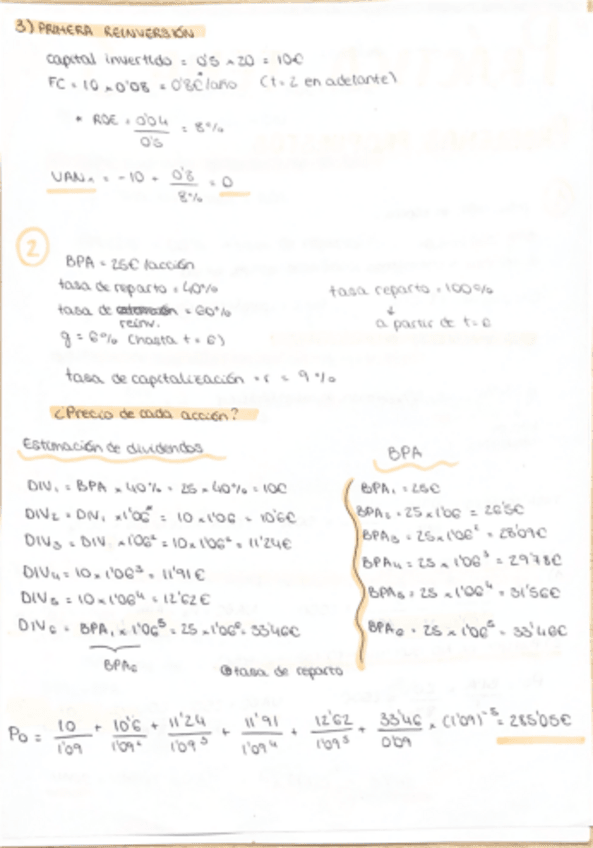 3) PRIMERA REINVERSIÓN
capital invertido = 0'5 x 20 = 10€
FC = 10 x 0'08 = 0'8€/año (t=2 en adelante)
* ROE = 0'04 / 0'5 = 8%
VAN₁ = -10 + 0'8 / 8% = 0
2
BPA = 25€/acción
tasa de reparto = 40%
tasa reparto = 100%
tasa de reinv. = 60%
↓
a partir de t=6
g = 6% (hasta t=6)
tasa de capitalización = r = 9%
¿Precio de cada acción?
Estimación de dividendos
BPA
DIV₁ = BPA x 40% = 25 x 40% = 10€
BPA₁ = 25€
DIV₂ = DIV₁ x 1'06 = 10 x 1'06 = 10'6€
BPA₂ = 25 x 1'06 = 26'5€
DIV₃ = DIV₁ x 1'06² = 10 x 1'06² = 11'24€
BPA₃ = 25 x 1'06² = 28'09€
DIV₄ = 10 x 1'06³ = 11'91€
BPA₄ = 25 x 1'06³ = 29'78€
DIV₅ = 10 x 1'06⁴ = 12'62€
BPA₅ = 25 x 1'06⁴ = 31'56€
DIV₆ = BPA₁ x 1'06⁵ = 25 x 1'06⁵ = 33'46€
BPA₆ = 25 x 1'06⁵ = 33'46€
BPA₆
tasa de reparto
P₀ = 10 / 1'09 + 10'6 / 1'09² + 11'24 / 1'09³ + 11'91 / 1'09⁴ + 12'62 / 1'09⁵ + 33'46 / 0'09 x (1'09)⁻⁵ = 285'05€